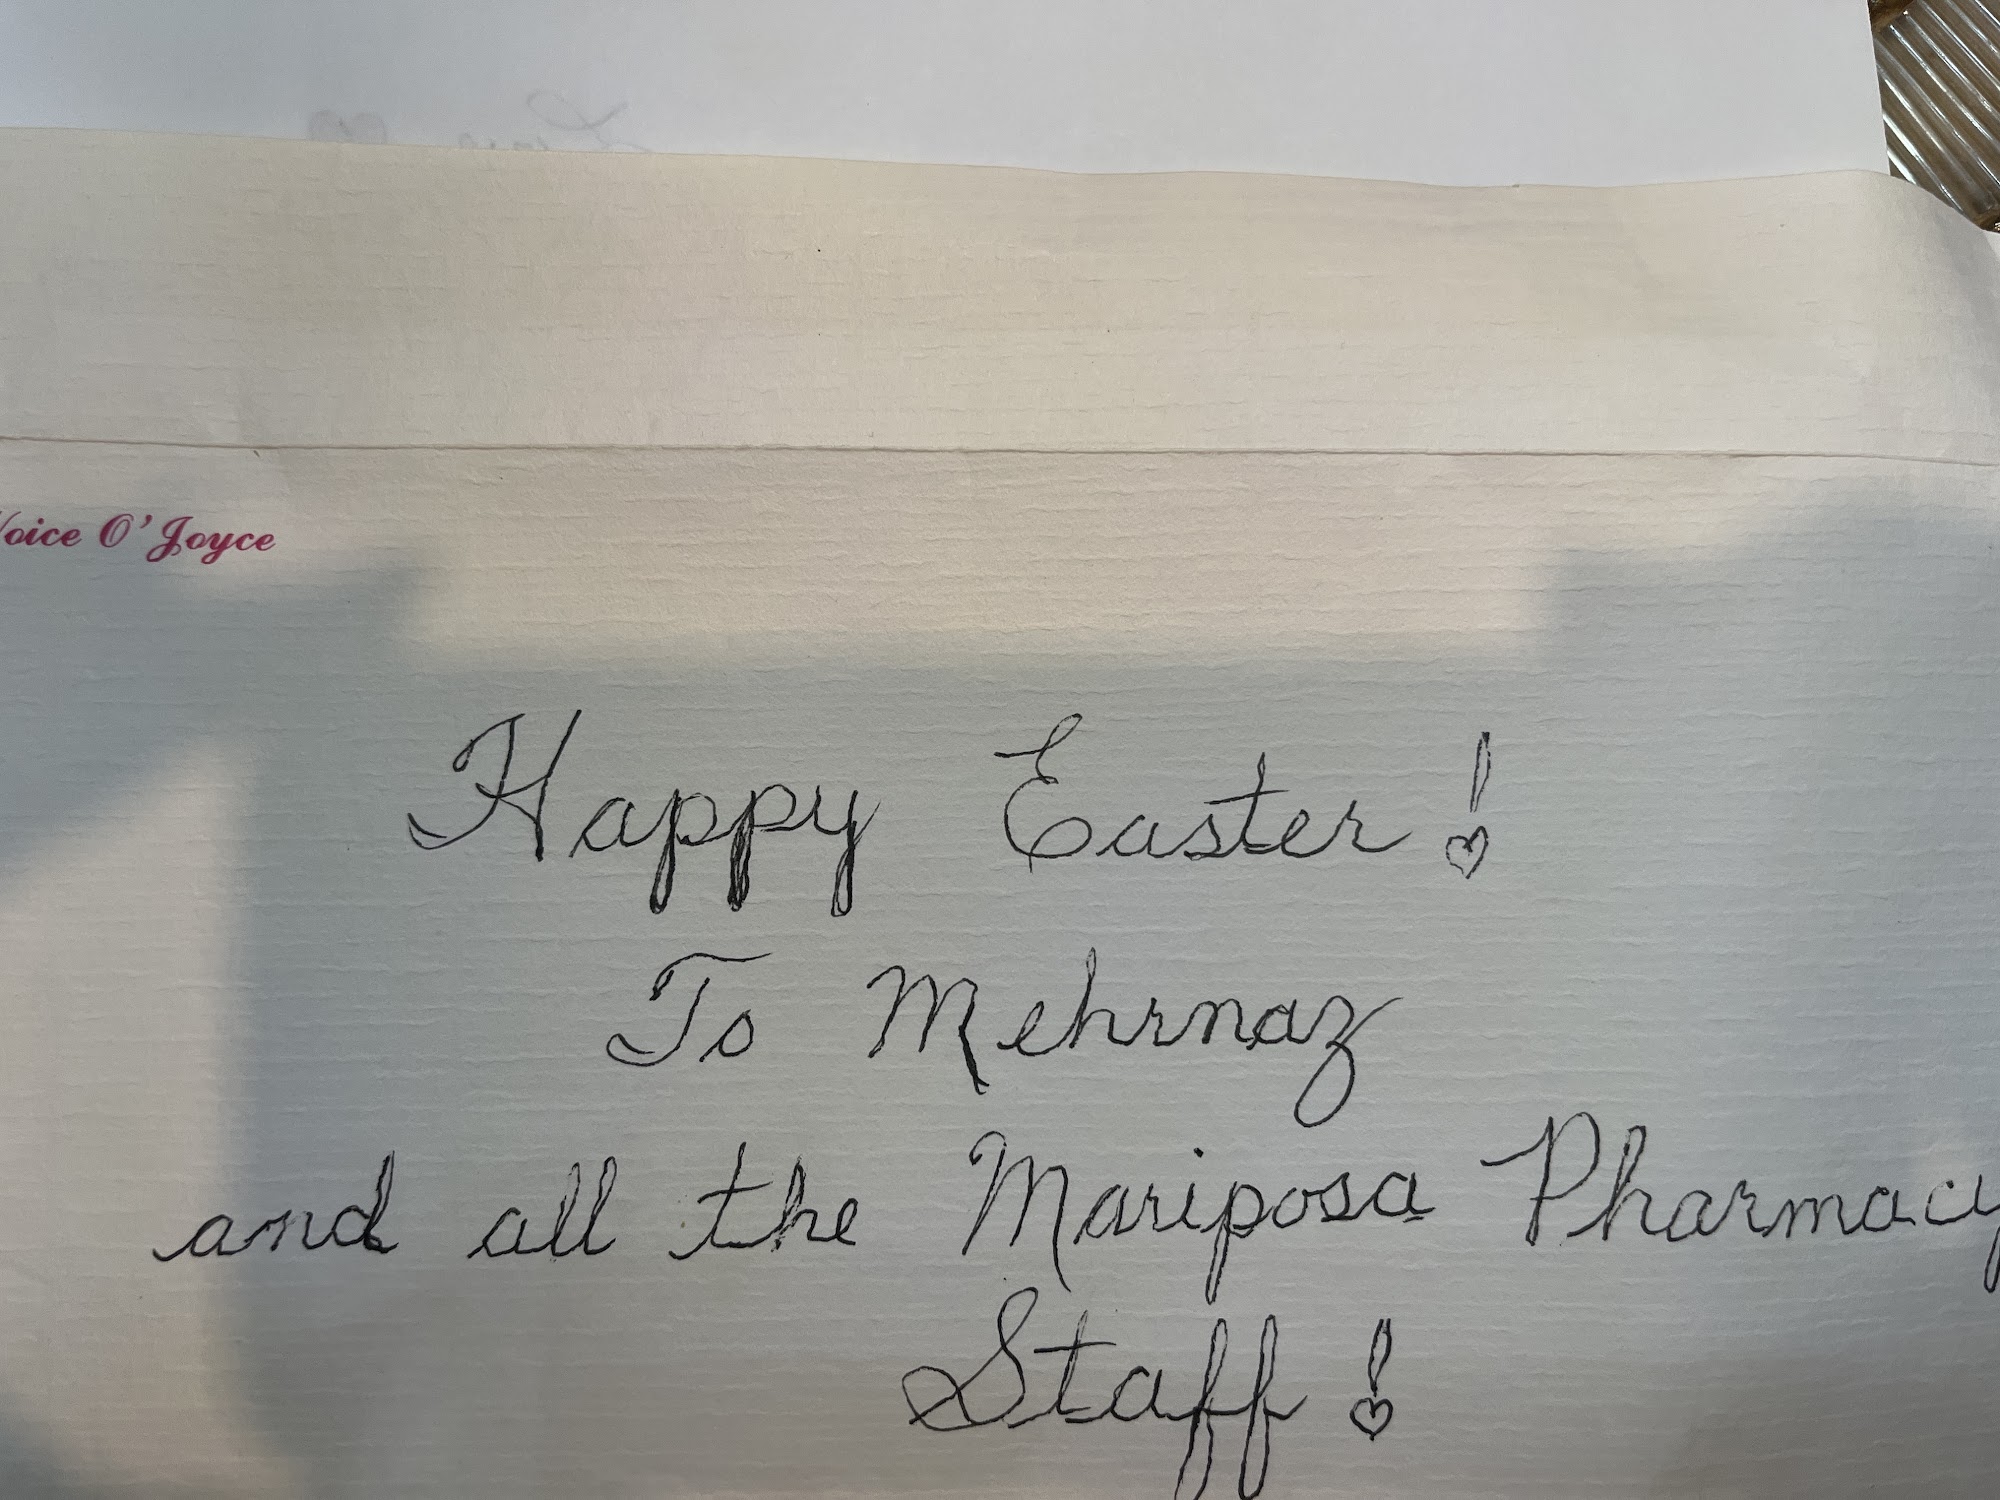 Voice O'Joyce
Happy Easter!
To Mehrnaz
and all the Mariposa Pharmacy
Staff!